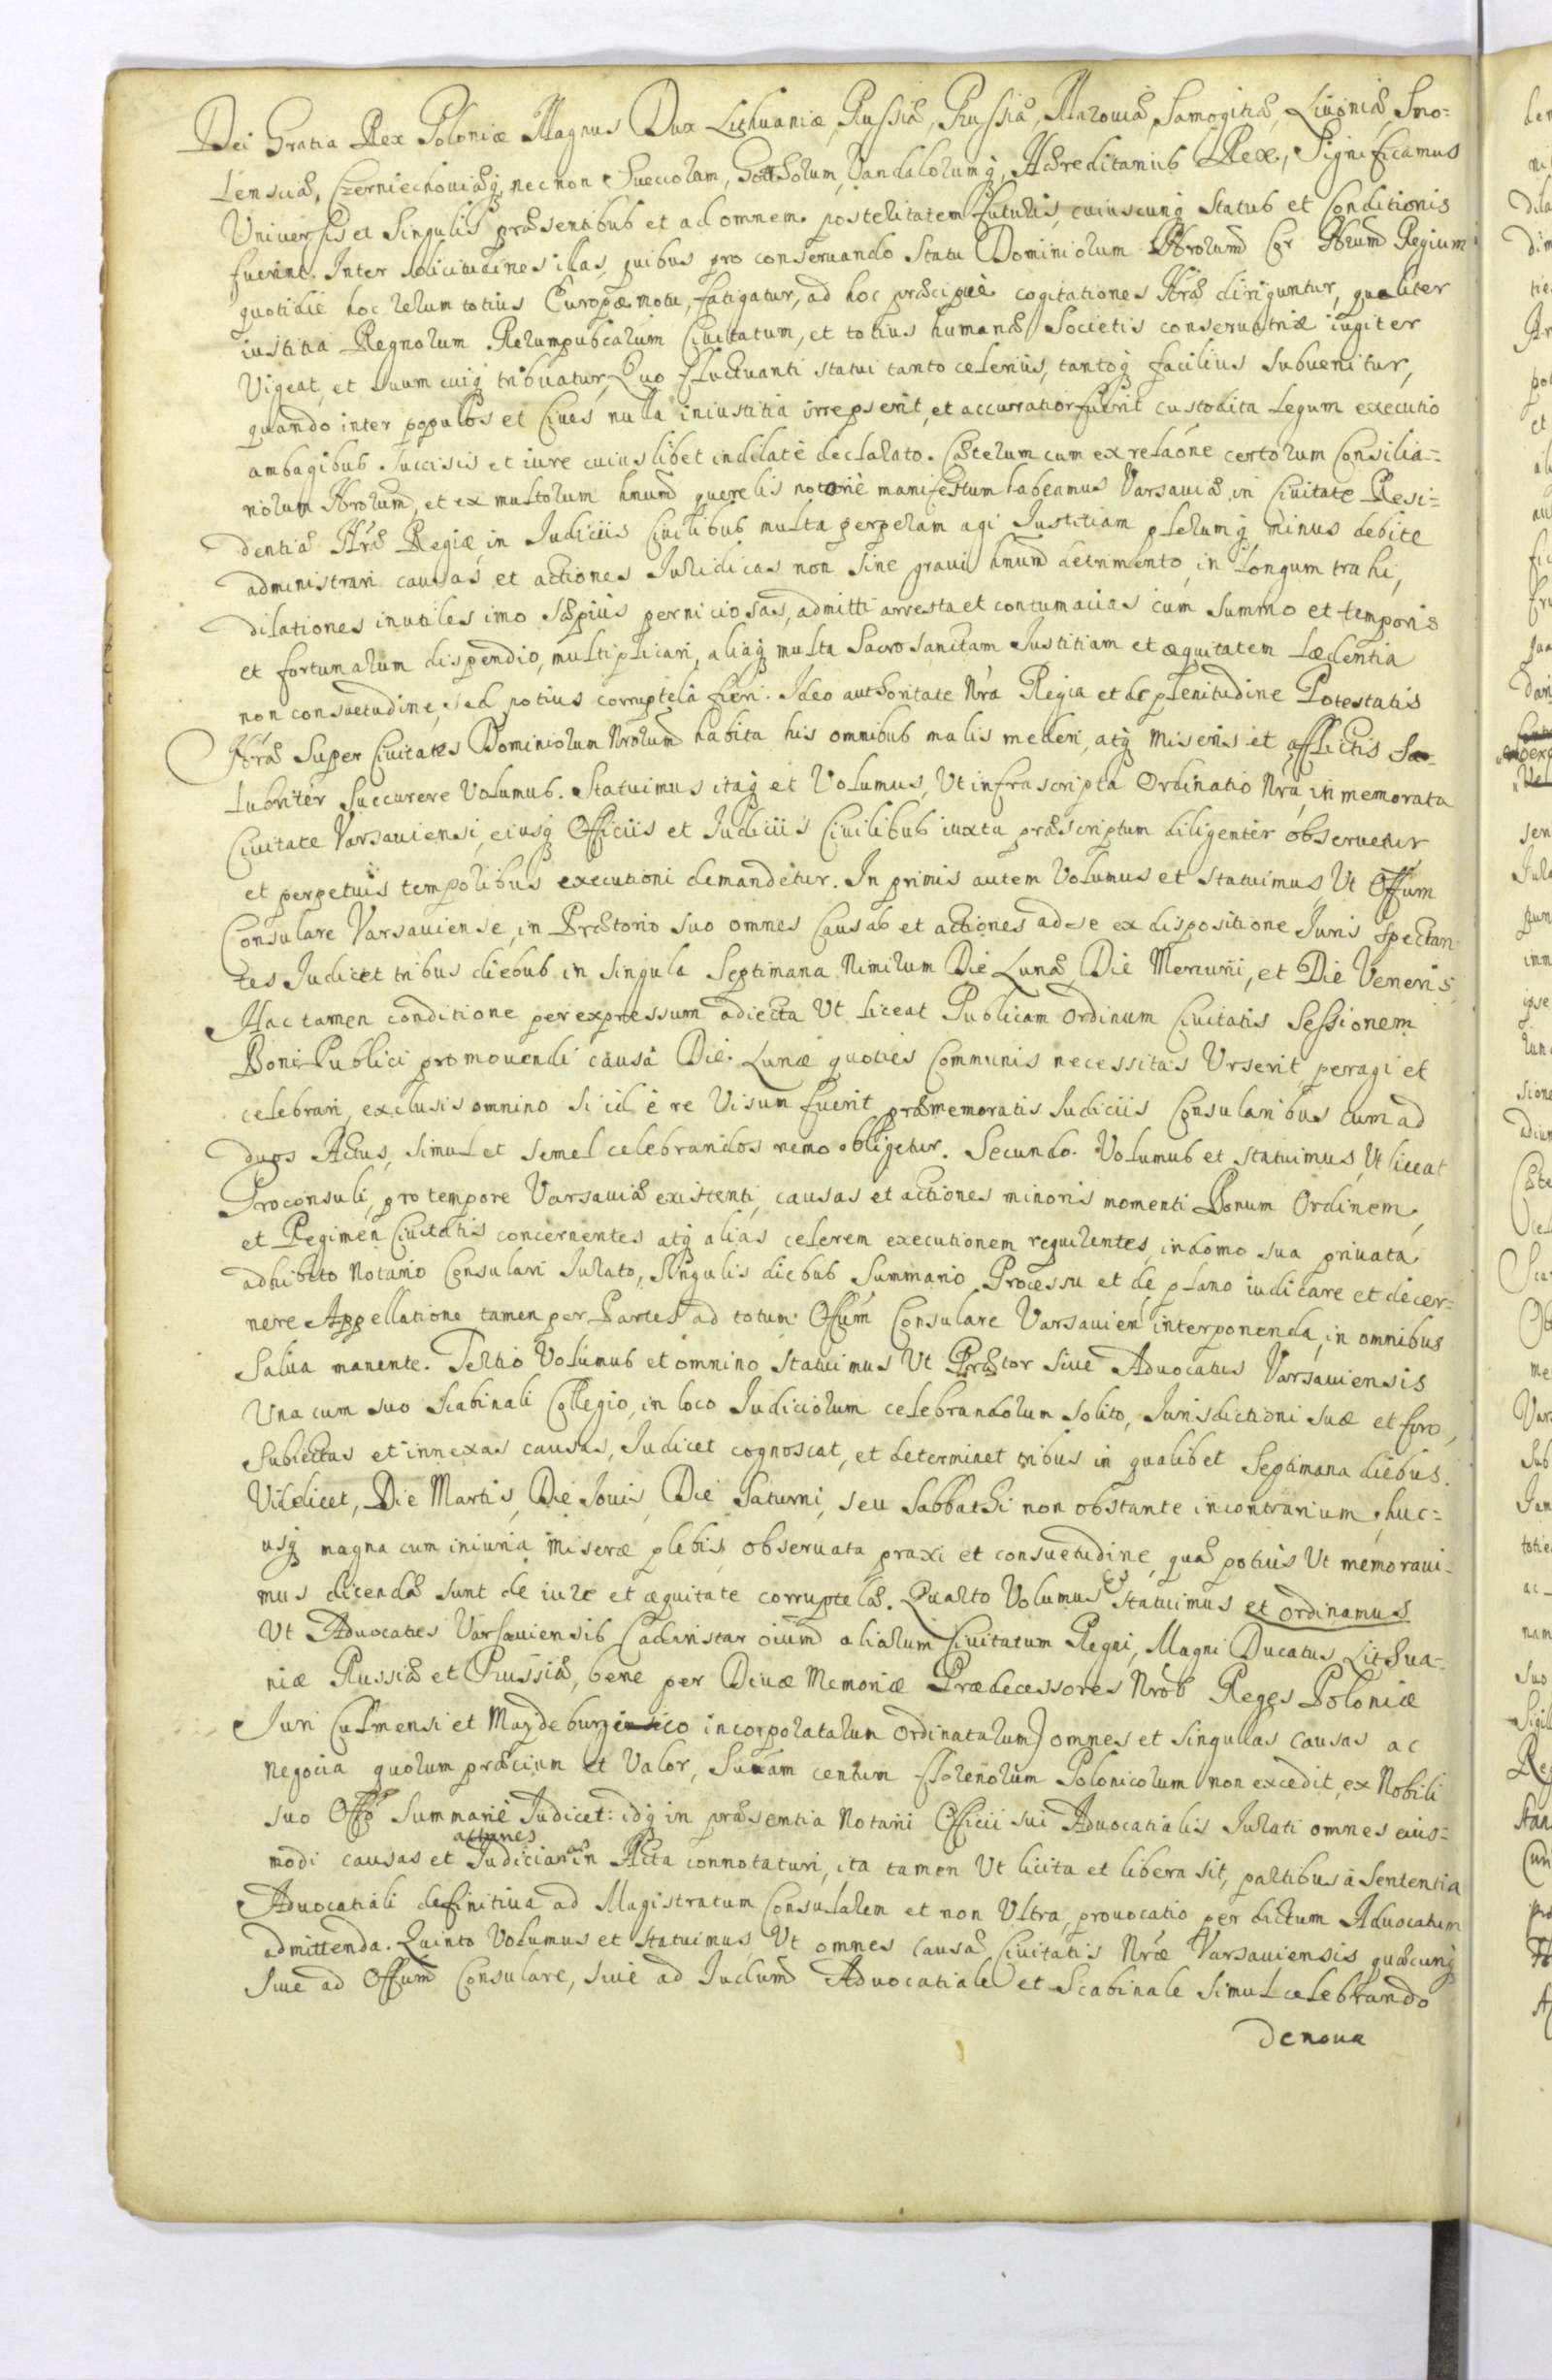 Dei Gratia Rex Poloniæ Magnus Dux Lithuaniæ, Russiæ, Prussiæ, Mazouiæ, Samogitiæ, Liuoniæ, Smo-
lensciæ, Czerniechouiæq, nec non Sueciorum, Gotthorum, Vandalorumq, Hæreditarius Rex, Significamus
Universis et Singulis præsentibus et ad omnem posteritatem futuris, cuiuscunq Status et Conditionis
fuerint. Inter solicitudines illas, quibus pro conseruando Statu Dominiorum Nrorum Cor Nrum Regium
quotidie hoc rerum totius Europæ motu, fatigatur, ad hoc præcipuè cogitationes Nræ diriguntur, qualiter
iustitia Regnorum Rerumpubcarum Ciuitatum, et totius humanæ Societis conseruatrix iugiter
Vigeat, et suum cuiq tribuatur, Quo fluctuanti statui tanto celerius, tantoq facilius Subuenitur,
quando inter populos et Ciues nulla iniustitia irrepserit, et accurratior fuerit custodita Legum executio
ambagibus succisis et iure cuiuslibet indilatè declarato. Cæterum cum ex relaone certorum Consilia=
riorum Nrorum, et ex multorum hnum querelis notoriè manifestum habeamus Varsauiæ, in Ciuitate Resi=
dentiæ Nræ Regiæ, in Judiciis Ciuilibus multa perperam agi Justitiam plerumq minus debite
administrari causas et actiones Juridicas non sine graui hnum detrimento, in longum trahi,
dilationes inutiles imo sæpius perniciosas, admitti arresta et contumacias cum summo et temporis
et fortunarum dispendio, multiplicari, aliaq multa Sacrosanctam Justitiam et æquitatem lædentia
non consuetudine, sed potius corruptela fieri. Ideo authoritate Nra Regia et de plenitudine Potestatis
Nræ Super Ciuitates Dominiorum Nrorum habita his omnibus malis mederi, atq miseris et afflictis Sa-
lubriter Succurere Volumus. Statuimus itaq et Volumus, Ut infrascripta Ordinatio Nra, in memorata
Ciuitate Varsauiensi, eiusq Officiis et Judiciis Ciuilibus iuxta præscriptum diligenter obseruetur
et perpetuis temporibus executioni demandetur. In primis autem Volumus et statuimus, Ut Offum
Consulare Varsauiense, in Prætorio suo omnes Causas et actiones ad se ex dispositione Juris Spectan-
tes Judicet tribus diebus in Singula Septimana Nimirum Die Lunæ, Die Mercurii, et Die Veneris,
Hac tamen conditione per expressum adiecta Ut liceat Publicam Ordinum Ciuitatis Sessionem
Boni Publici promouendi causa Die Lunæ quoties Communis necessitas Urserit, perragi et
celebrari, exclusis omnino si id è re Uisum fuerit præmemoratis Judiciis Consularibus cum ad
duos Actus, simul et semel celebrandos nemo obligetur. Secundo. Volumus et statuimus, Ut liceat
Proconsuli, pro tempore Varsauiæ existenti, causas et actiones minoris momenti Bonum Ordinem,
et Regimen Ciuitatis concernentes atq alias celerem executionem requirentes, in domo sua priuata
adhibito Notario Consulari Jurato, Singulis diebus Summario Processu et de plano iudicare et decer=
nere Appellatione tamen per Partes ad totum Offum Consulare Varsauien interponenda, in omnibus
Salua manente. Tertio Volumus et omnino statuimus Ut Prætor siue Aduocatus Varsauiensis
Una cum suo Scabinali Collegio, in loco Judiciorum celebrandorum solito, Jurisdictioni suæ et foro,
Subiectas et innexas causas, Judicet cognoscat, et determinet tribus in qualibet Septimana diebus.
Videlicet, Die Martis, Die Jouis, Die Saturni, seu Sabbathi non obstante in contrarium, huc=
usq magna cum iniuria miseræ plebis obseruata praxi et consuetudine, quæ potius Ut memoraui=
mus dicendæ sunt de iure et æquitate corruptelæ. Quarto Volumus et Statuimus et ordinamus
Ut Aduocatus Varsauiensis (ad instar oium aliarum Ciuitatum Regni, Magni Ducatus Lithua=
niæ Russiæ et Prussiæ, bene per Diuæ Memoriæ Prædecessores Nros Reges Poloniæ
Juri Culmensi et Maydeburgensico incorporatarum Ordinatarum) omnes et singullas causas ac
Negocia quorum præcium et Valor, Sumam centum florenorum Polonicorum non excedit, ex Nobili
suo Offo Summariè Judicet: idq in præsentia Notarii Officii sui Aduocatialis Jurati omnes eius=
modi causas et actiones Judiciarias in Acta connotaturi, ita tamen Ut licita et libera sit, partibus à Sententia
Aduocatiali definitiua ad Magistratum Consularem et non Ultra, prouocatio per dictum Aduocatum
admittenda. Quinto Volumus et statuimus, Ut omnes causæ Ciuitatis Nræ Varsauiensis quæcunq
Siue ad Offum Consulare, siue ad Judum Aduocatiale et Scabinale simul celebrando
denoua